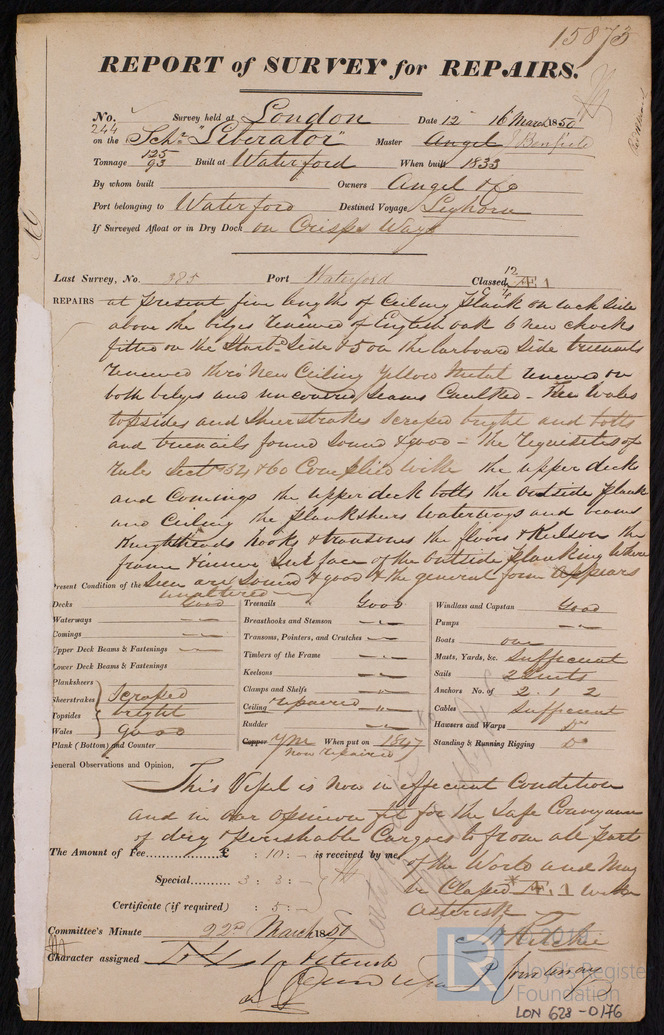 15873
REPORT of SURVEY for REPAIRS.
No. 244 Survey held at London Date 12 16 March 1850
on the Schr "Liberator" Master Angel Benfield
Tonnage 125 93 Built at Waterford When built 1833
By whom built Owners Angel & Co
Port belonging to Waterford Destined Voyage Leghorn
If Surveyed Afloat or in Dry Dock on Crisps Ways
Last Survey, No. 385 Port Waterford Classed 12 Æ 1
REPAIRS at present five lengths of Ceiling plank on each side
above the bilges renewed of English oak 6 new chocks
fitted on the Starbd Side & 5 on the larboard Side treenails
renewed thro' New Ceiling Yellow Metal renewed on
both bilges and uncovered Seams Caulked - Then Wales
topsides and Sheerstrakes scraped bright and bolts
and treenails found Sound & good - The requisites of
rule Sect 54 & 60 Complied with the upper decks
and Comings the upper deck bolts the outside plank
and Ceiling the planksheers Waterways and beams
Knightheads hooks & transoms the floors & Keelson the
frame & inner Surface of the outside planking where
Present Condition of the Seen are Sound & good & the general form Appears
unaltered
Decks Good
Waterways
Comings
Upper Deck Beams & Fastenings
Lower Deck Beams & Fastenings
Planksheers
Sheerstrakes scraped
Topsides bright
Wales good
Plank (Bottom) and Counter
Treenails Good
Breasthooks and Stemson
Transoms, Pointers, and Crutches
Timbers of the Frame
Keelsons
Clamps and Shelfs
Ceiling repaired
Rudder
Copper YM When put on 1847
now repaired
Windlass and Capstan Good
Pumps
Boats one
Masts, Yards, &c. Sufficient
Sails 2 Suits
Anchors No. of 2.1.2
Cables Sufficient
Hawsers and Warps Do
Standing & Running Rigging Do
General Observations and Opinion,
This Vessel is now in efficient Condition
and in our opinion fit for the Safe Conveyance
of dry & perishable Cargoes to & from all parts
of the World and May
be Classed * Æ 1 with
asterisk
The Amount of Fee £ : 10 : - is received by me
Special 3 : 3 : -
Certificate (if required) : 5 : -
Committee's Minute 22d March 1850
Character assigned
Ritchie
© 2019
LR
Lloyd's Register
Foundation
LON 628-0176